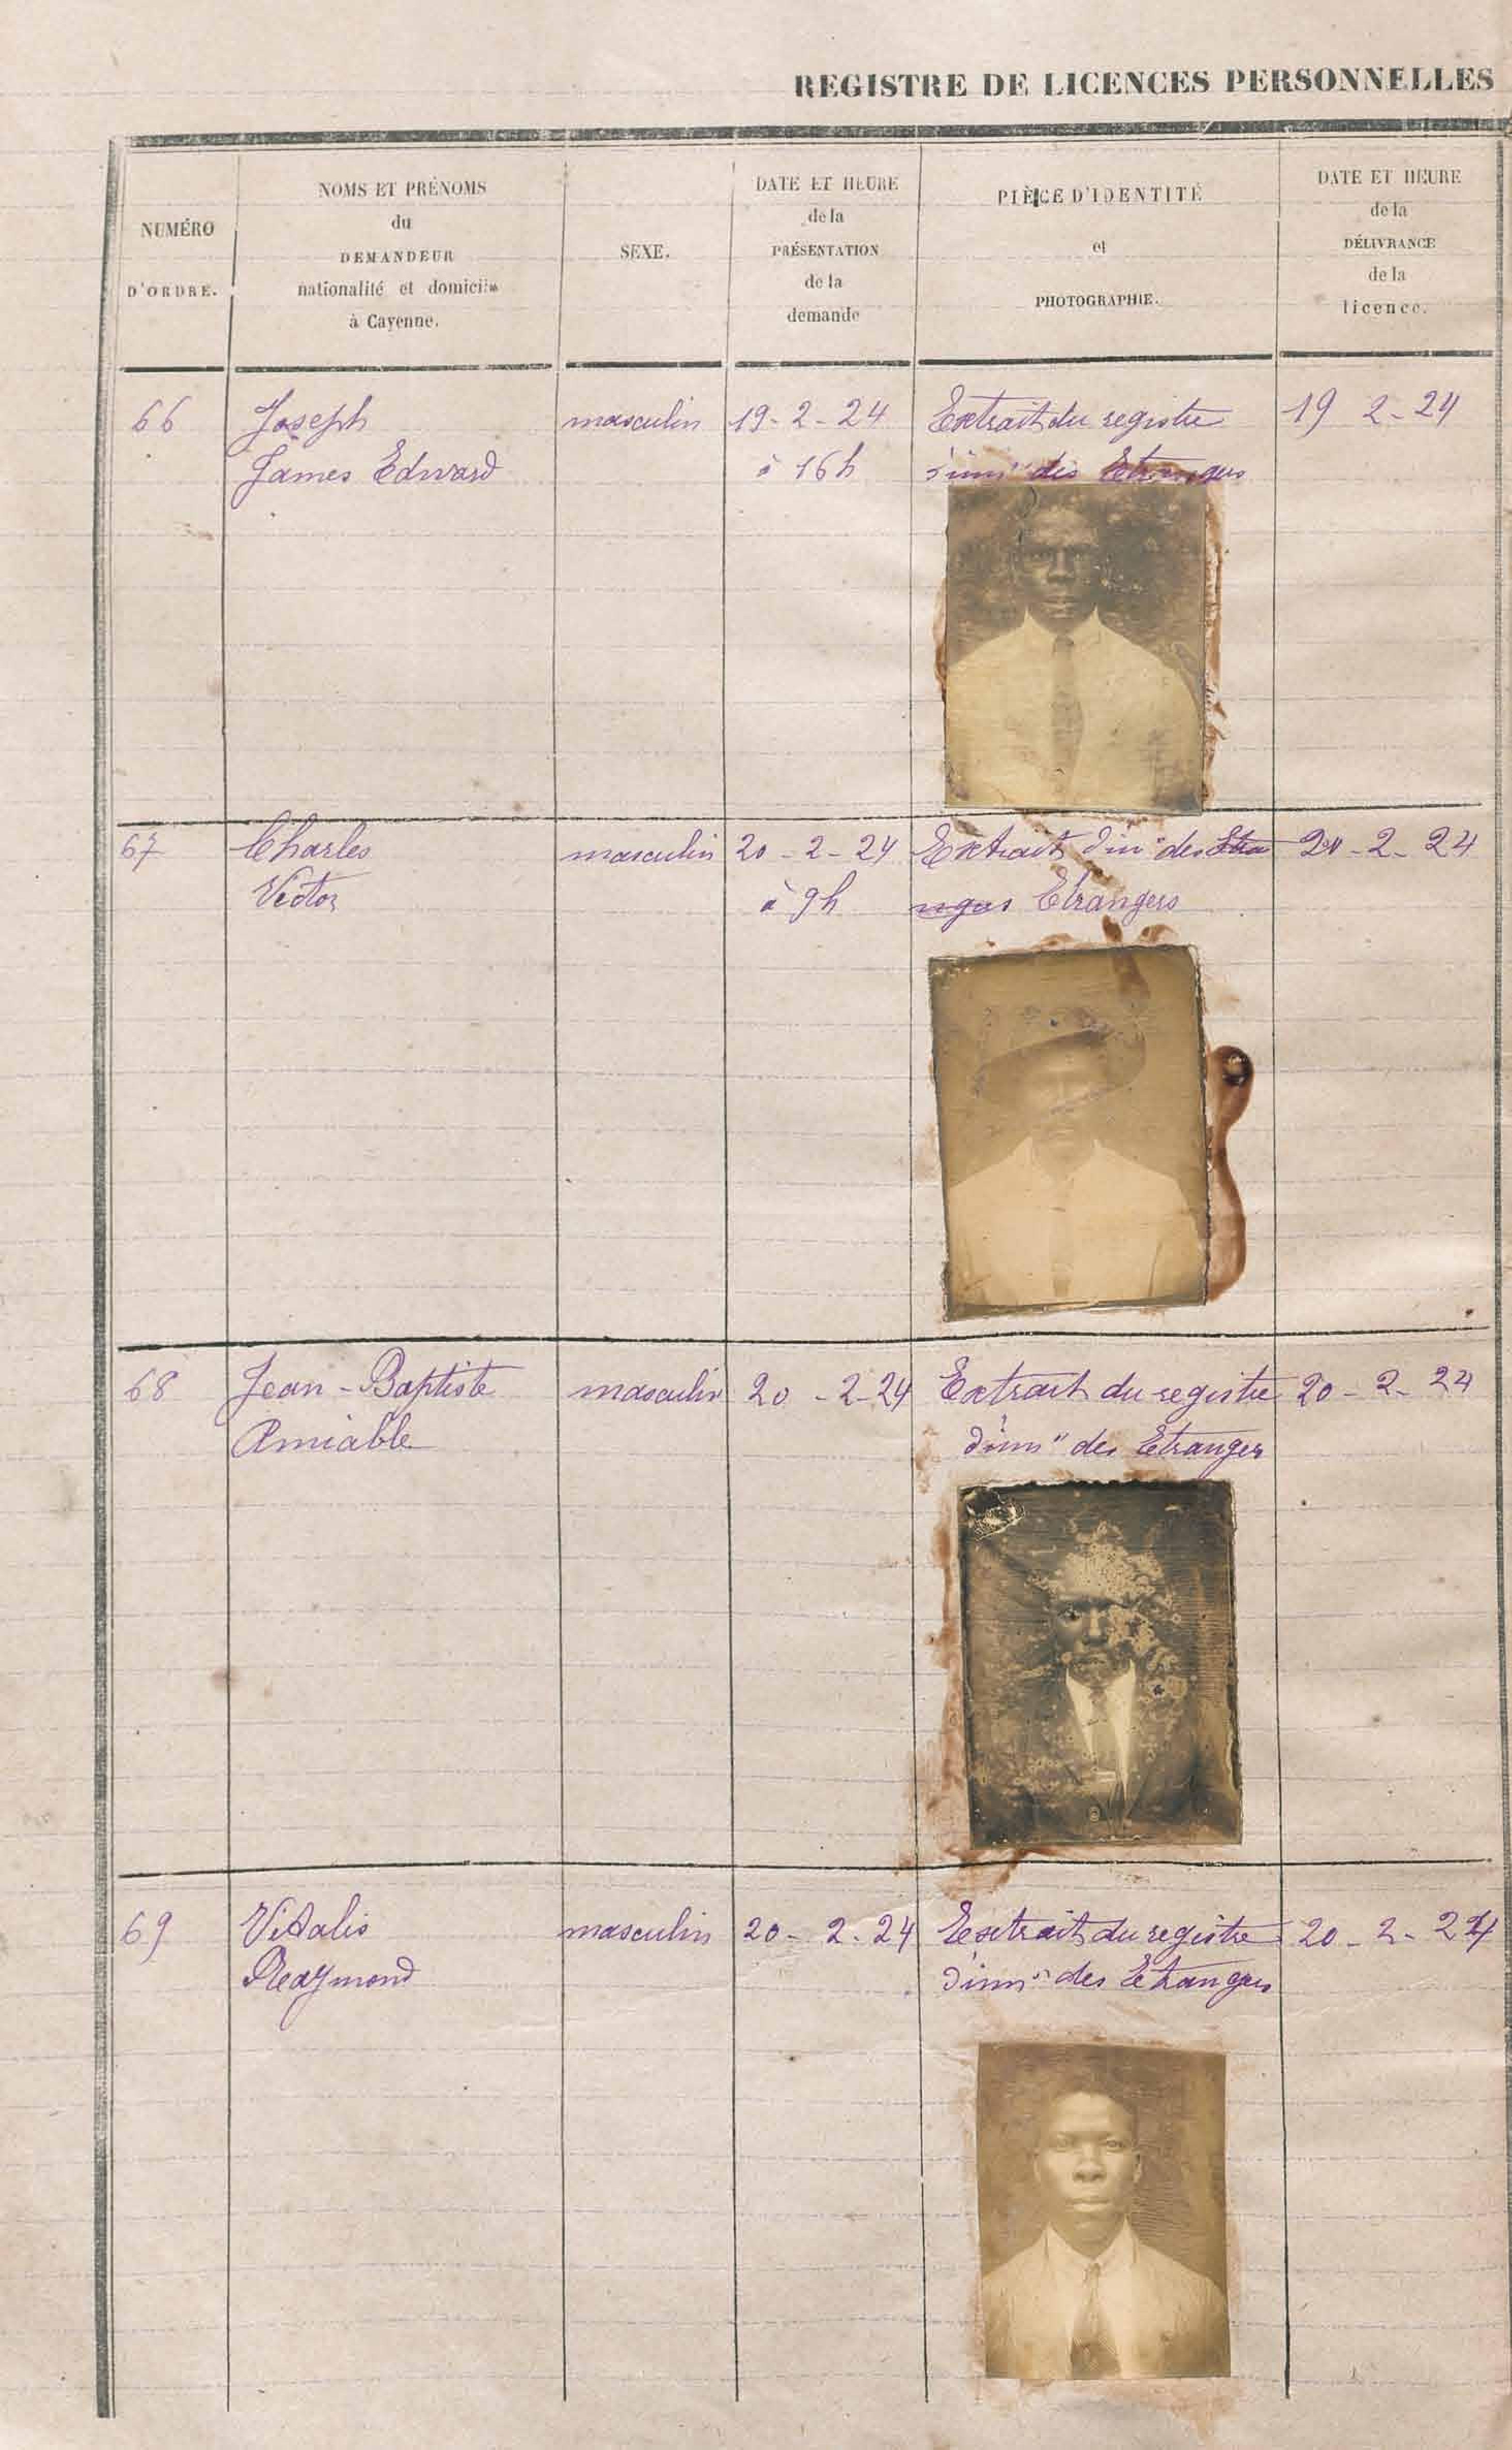 REGISTRE DE LICENCES PERSONNELLES
NUMÉRO
D'ORDRE.
NOMS ET PRÉNOMS
du
DEMANDEUR
nationalité et domicile
à Cayenne.
SEXE.
DATE ET HEURE
de la
PRÉSENTATION
de la
demande
PIÈCE D'IDENTITÉ
et
PHOTOGRAPHIE.
DATE ET HEURE
de la
DÉLIVRANCE
de la
licence.
66 Joseph masculin 19-2-24 Extrait du registre 19 2-24
James Edward à 16h d'imn des Etrangers
67 Charles masculin 20-2-24 Extrait d'in des Etra 20-2-24
Victor à 9h ngers Etrangers
68 Jean-Baptiste masculin 20-2-24 Extrait du registre 20-2-24
Amiable d'imn des Etranger
69 Vitalis masculin 20-2-24 Extrait du registre 20-2-24
Raymond d'imn des Etrangers